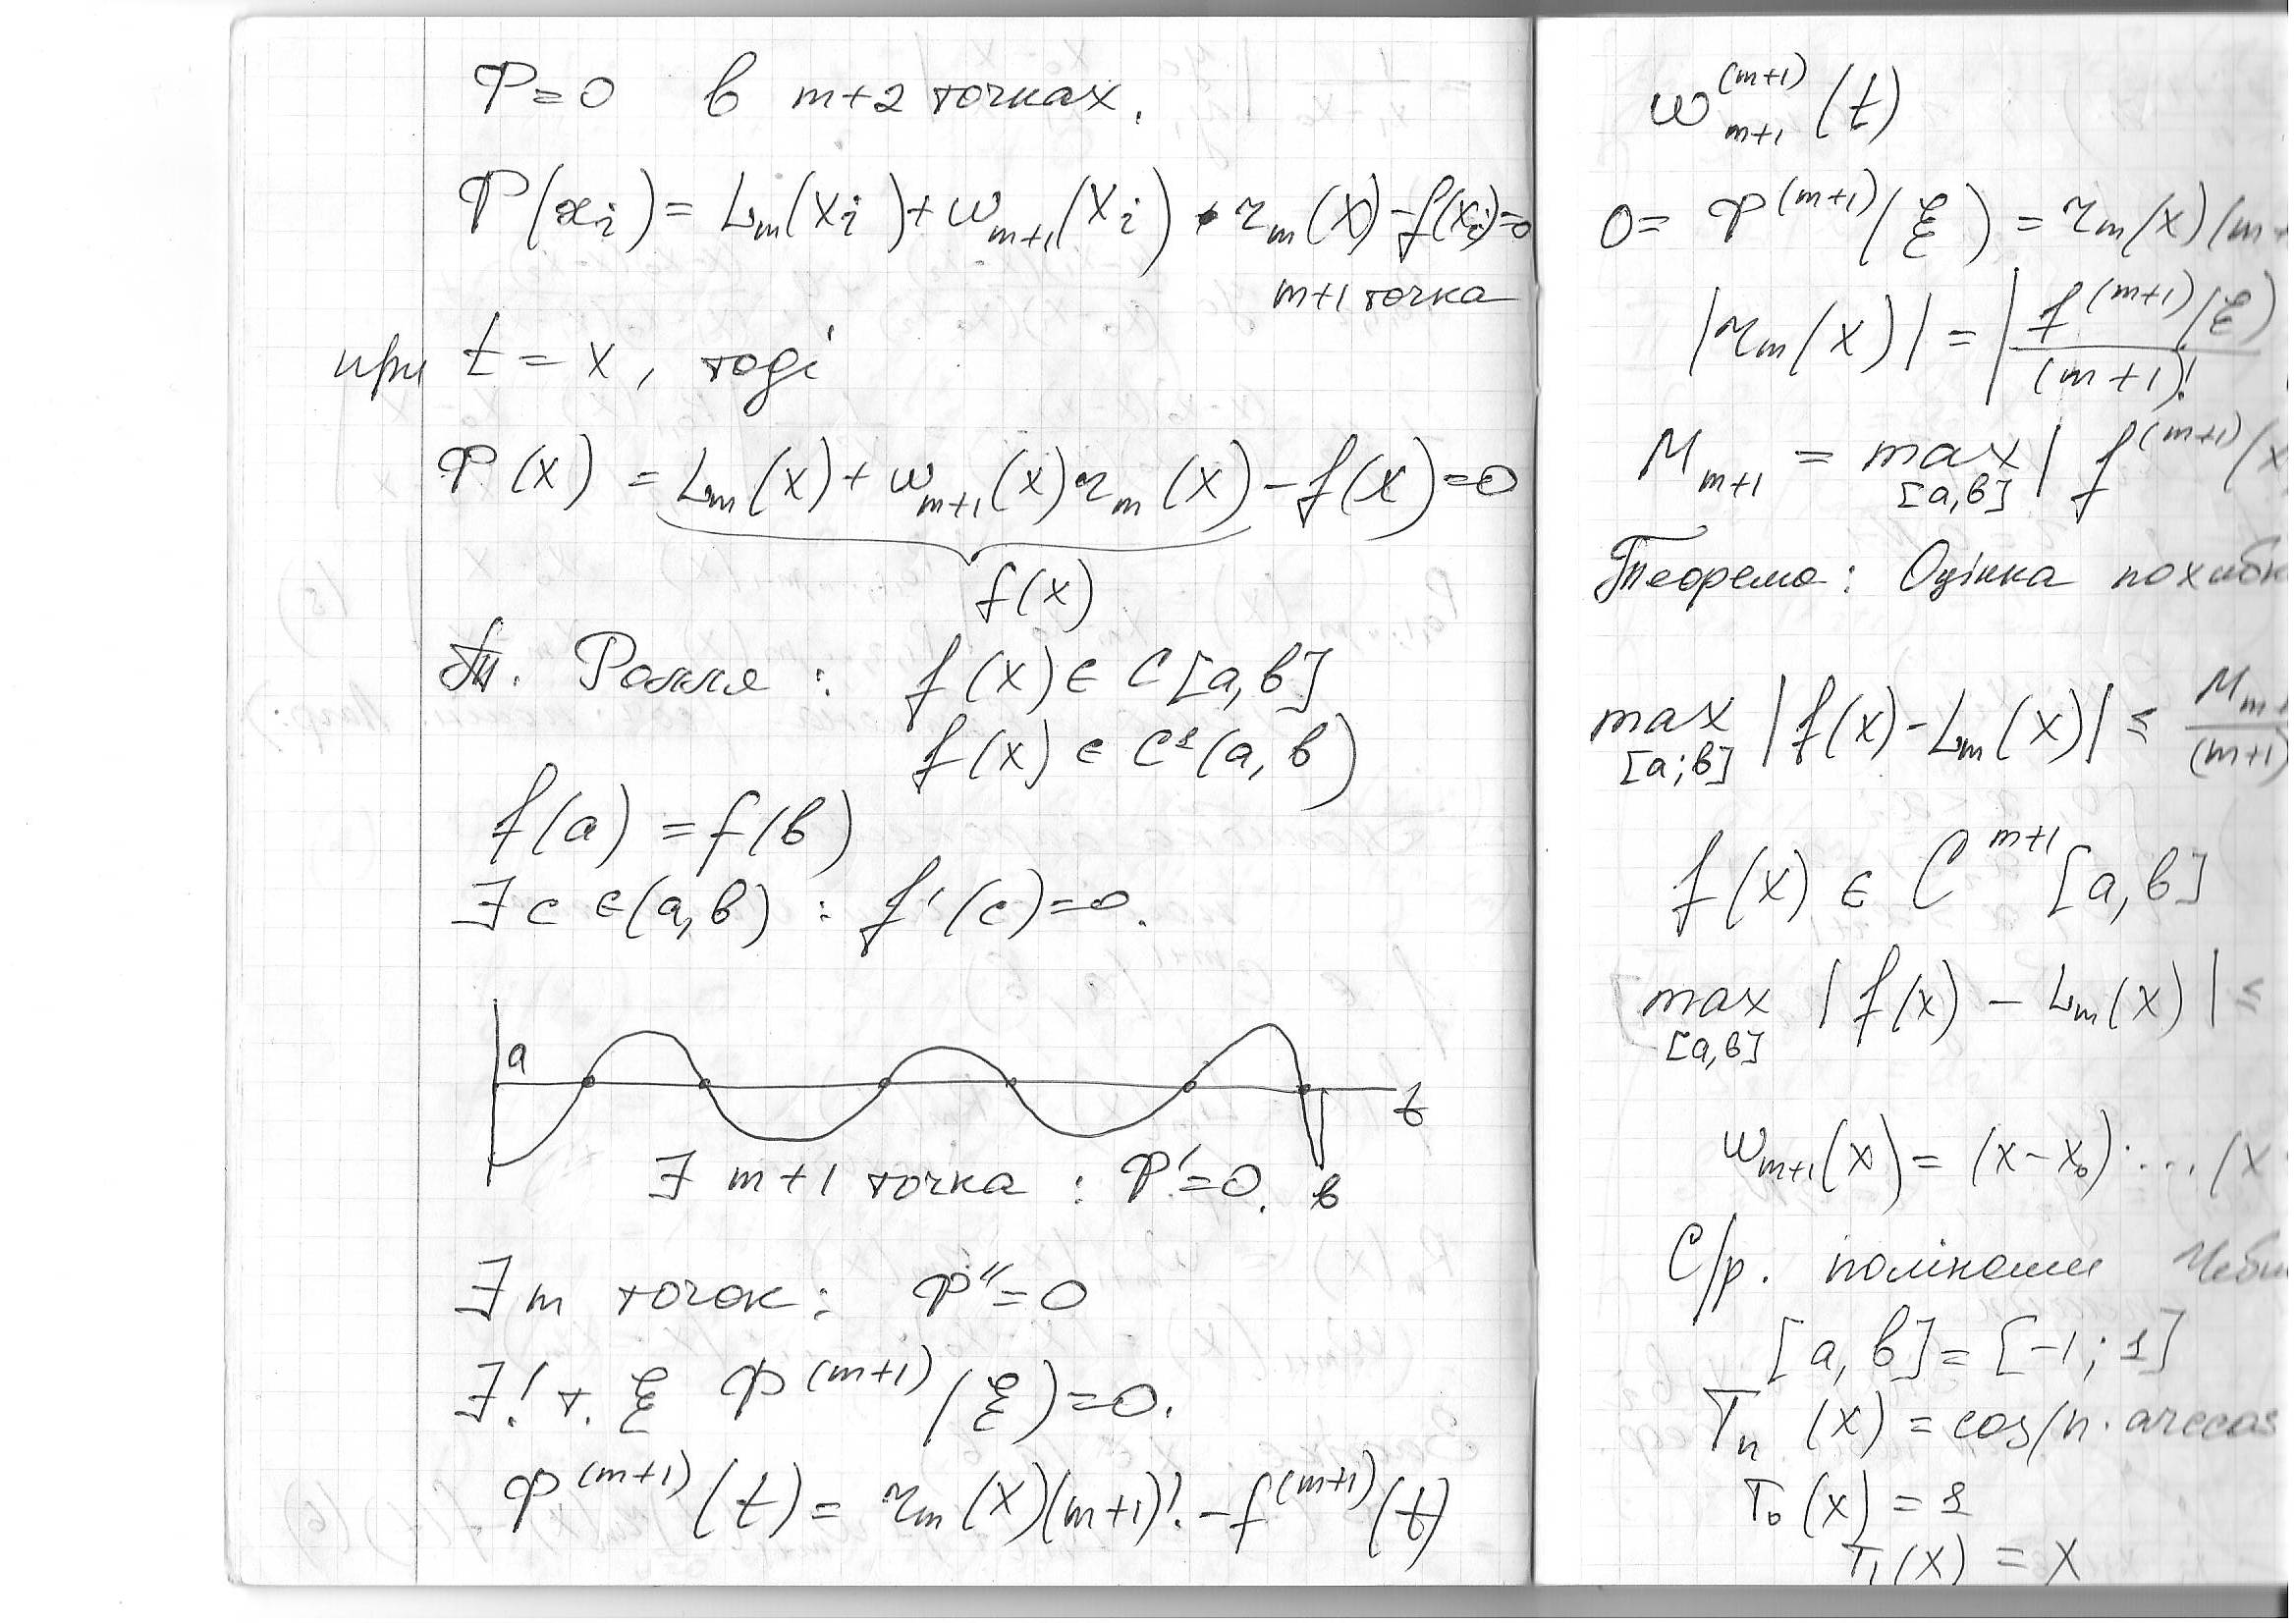 Φ=0 в m+2 точках.
Φ(xᵢ)= Lₘ(xᵢ)+ωₘ₊₁(xᵢ)·rₘ(x)-f(xᵢ)=0
m+1 точка
при t = x, тоді
Φ(x) = Lₘ(x)+ωₘ₊₁(x)rₘ(x)-f(x)=0
f(x)
Т. Ролля : f(x)∈C[a,b]
f(x)∈C¹(a,b)
f(a)=f(b)
∃ c ∈(a,b) : f'(c)=0.
a
t
∃ m+1 точка : Φ'=0. b
∃ m точок: Φ''=0
∃! т. ξ Φ^(m+1)(ξ)=0.
Φ^(m+1)(t)= rₘ(x)(m+1)!-f^(m+1)(t)
ωₘ₊₁^(m+1)(t)
0= Φ^(m+1)(ξ) = rₘ(x)(m+
|rₘ(x)| = | f^(m+1)(ξ)
(m+1)!
Mₘ₊₁ = max | f^(m+1)(x
[a,b]
Теорема: Оцінка похибк
max |f(x)-Lₘ(x)| ≤ Mₘ₊
[a;b] (m+1)
f(x) ∈ C^m+1 [a,b]
max |f(x) - Lₘ(x)| ≤
[a,b]
ωₘ₊₁(x)= (x-x₀)·...(x
С/р. поліноми Чеби
[a,b]=[-1;1]
Tₙ(x)=cos(n·arccos
T₀(x)=1
T₁(x) = x